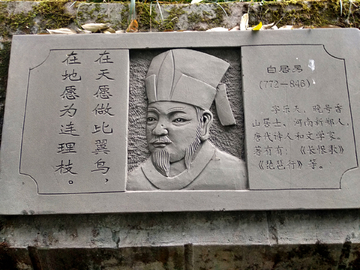 在天愿做比翼鸟，
在地愿为连理枝。
白居易
(772—846)
字乐天，晚号香
山居士，河南新郑人，
唐代诗人和文学家。
著有有：《长恨歌》
《琵琶行》等。